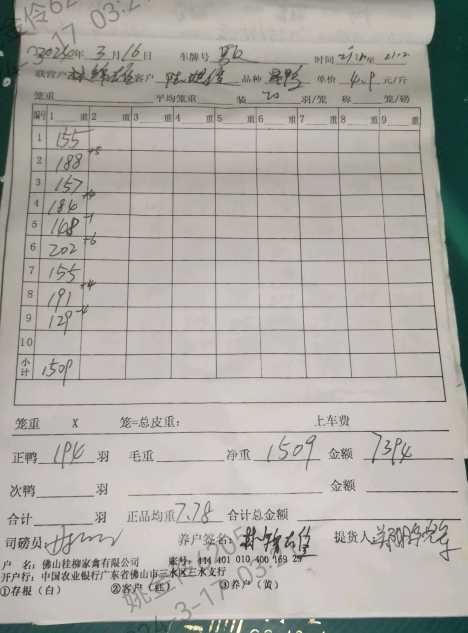 2024年 3月16日 车牌号 时间
联营户 客户 品种 单价 4.9 元/斤
笼重 平均笼重 装 20 羽/笼 称 笼/磅
编号 1 重 2 重 3 重 4 重 5 重 6 重 7 重 8 重 9 重
1 155
2 188 +5
3 157
4 184
5 148 -1
6 202 +6
7 155
8 191 +4
9 129 -4
10
小计 1509
笼重 X 笼=总皮重: 上车费
正鸭 194 羽 毛重 净重 1509 金额 7394
次鸭 羽 金额
合计 羽 正品均重 7.78 合计总金额
司磅员 养户签名: 提货人
户 名: 佛山桂柳家禽有限公司 账号: 444 401 010 400 169 29
开户行: 中国农业银行广东省佛山市三水区三水支行
①存根（白） ②客户（红） ③养户（黄）